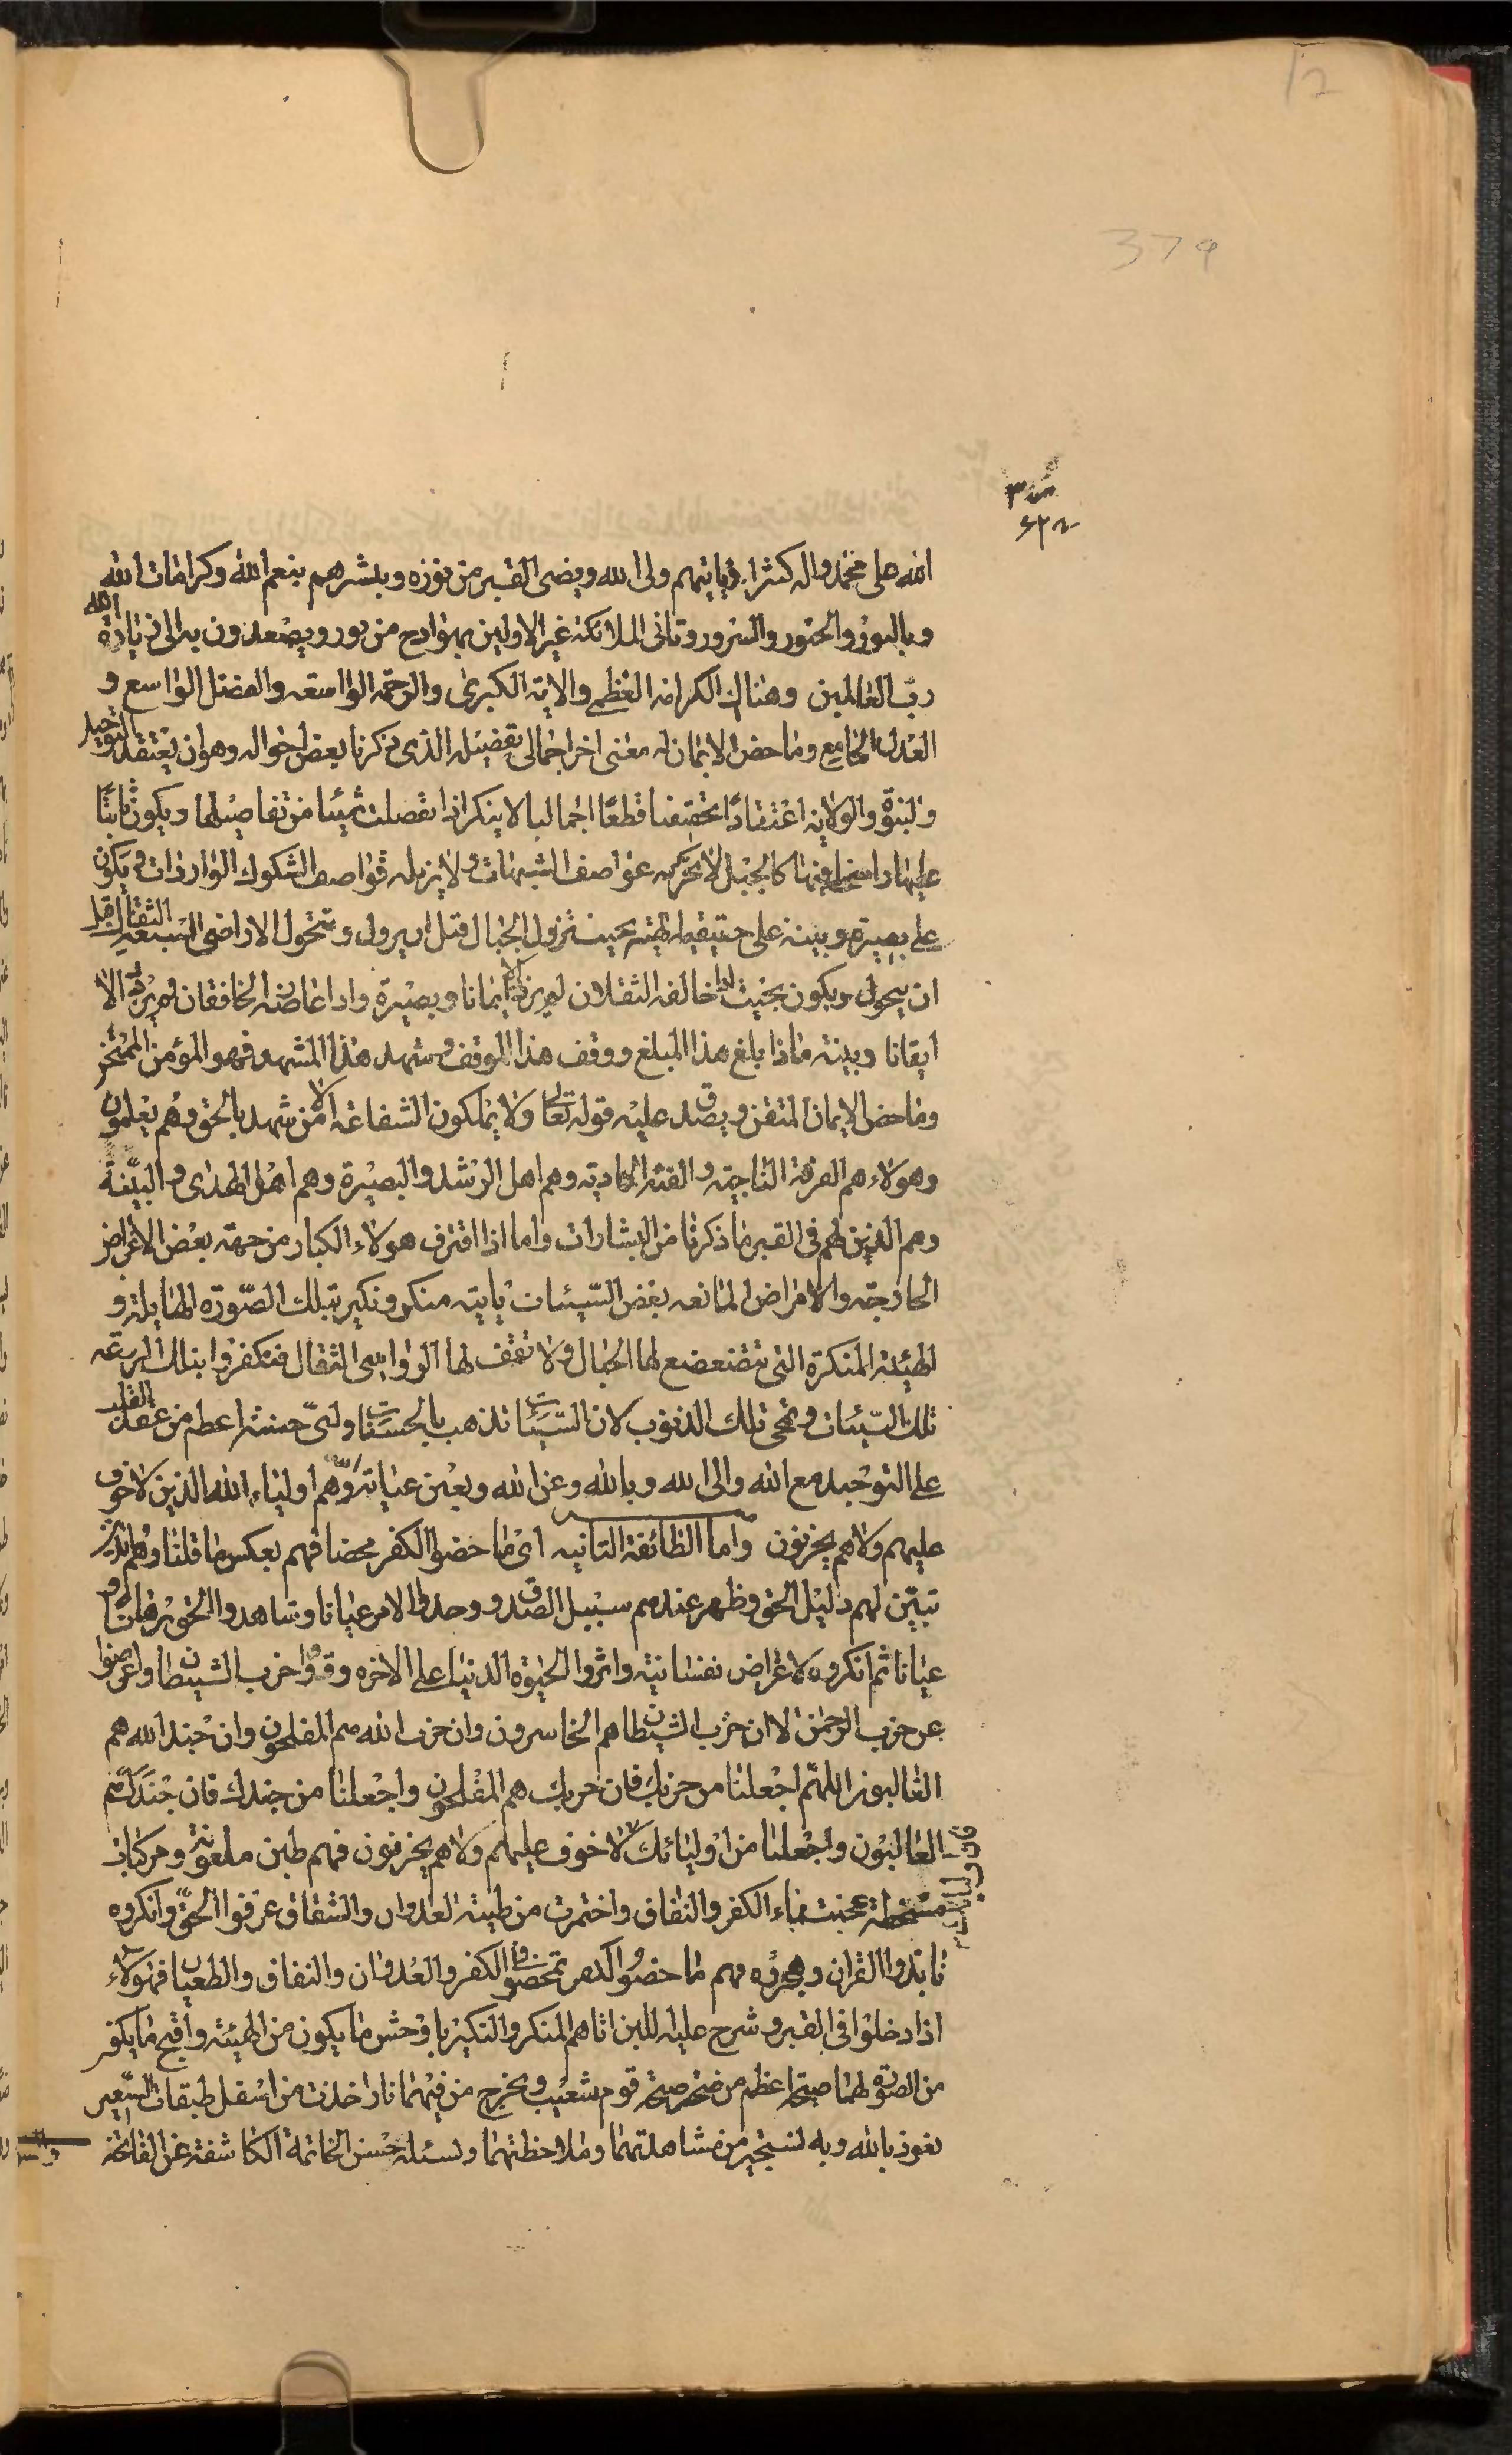 12
379
الله على محمد واله كثيرا فياتيهم ولى الله ويضئ القبر من نوره ويبشرهم بنعم الله وكرامات الله
وبالنور والحبور والسرور وتاتى الملائكة غير الاولين بهوادج من نور ويصعدون به الى زيادة الله
ربّ العالمين وهناك الكرامة العظمى والاية الكبرى والرحمة الواسعة والفضل الواسع و
العدل الجامع وماحض الايمان له معنى اخر اجمالى تفضيله الذى ذكرنا بعض احواله وهو ان يعتقد التوحيد
والنبوّة والولاية اعتقادًا قطعًا اجماليا لا ينكر اذا تفصلت شيئا من تفاصيلها ويكون ثابتًا
عليها راسخا فيها كالجبل لا تحركه عواصف الشبهات ولا يزيله قواصف الشكوك الواردات ويكون
على بصيرة وبينة على حقيقة بحيث تزول الجبال قبل ان يزول وتتحول الاراضى السبعة الثقال قبل
ان يتحول ويكون بحيث اذا خالفه الثقلان لم يزدد الا ايمانا وبصيرة واذا عاضه الخافقان لم يزدد الا
ايقانا وبينة ماذا بلغ هذا المبلغ ووقف هذا الموقف وشهد هذا المشهد فهو المؤمن الممتحن
وماحض الايمان المتقن ويصدق عليه قوله تعالى ولا يملكون الشفاعة الا من شهد بالحق وهم يعلمون
وهولاء هم الفرقة الناجية والفئة الهادية وهم اهل الرشد والبصيرة وهم اهل الهدى والبيّنة
وهم الذين لهم فى القبر ما ذكرنا من البشارات واما اذا اقترف هولاء الكبار من جهة بعض الاغراض
الخارجة والامراض المانعة بعض السّيئات ياتيه منكر ونكير بتلك الصّورة الهايلة و
الهيئة المنكرة التى تتضعضع لها الجبال ولا تقف لها الرواسى الثقال فتكفروا بتلك الروعة
تلك السّيئات وتمحى تلك الذنوب لان السيئات تذهب بالحسنات واىّ حسنة اعظم من عقد القلب
على التوحيد مع الله والى الله وبالله وعن الله وبعين عناية الله وهم اولياء الله الذين لا خوف
عليهم ولا هم يحزنون واما الطائفة الثانية اى ماحضوا الكفر محضا فهم بعكس ما قلنا وهم الذين
تبيّن لهم دليل الحق وظهر عندهم سبيل الصدق ووجدوا الامر عيانا وشاهدوا الحق برهانا و
عيانا ثم انكروه لاغراض نفسانية واثروا الحيوة الدنيا على الاخرة وقووا حزب الشيطان واعرضوا
عن حزب الرحمن الا ان حزب الشيطان هم الخاسرون وان حزب الله هم المفلحون وان جند الله هم
الغالبون اللهمّ اجعلنا من حزبك فان حزبك هم المفلحون واجعلنا من جندك فان جندك هم
الغالبون واجعلنا من اوليائك فان اولياءك لا خوف عليهم ولا هم يحزنون فهم طين ملعونة ومركبات
مسخطة عجنت بماء الكفر والنفاق واختمرت من طينة العدوان والشقاق عرفوا الحقّ وانكروه
نابذوا القران وهجروه فهم ماحضوا الكفر تمحضوا فى الكفر والعدوان والنفاق والطغيان فهولاء
اذا دخلوا فى القبر وشرج عليه اللبن اتاهم المنكر والنكير باوحش ما يكون من الهيئة واقبح ما يكون
من الصورة لهما صيحة اعظم من صيحة قوم شعيب ويخرج من فيهما نار اخذت من اسفل طبقات السّعير
نعوذ بالله وبه نستجير من مشاهدتهما وملاحظتهما ونسئله حسن الخاتمة الكاشفة عن الفاتحة